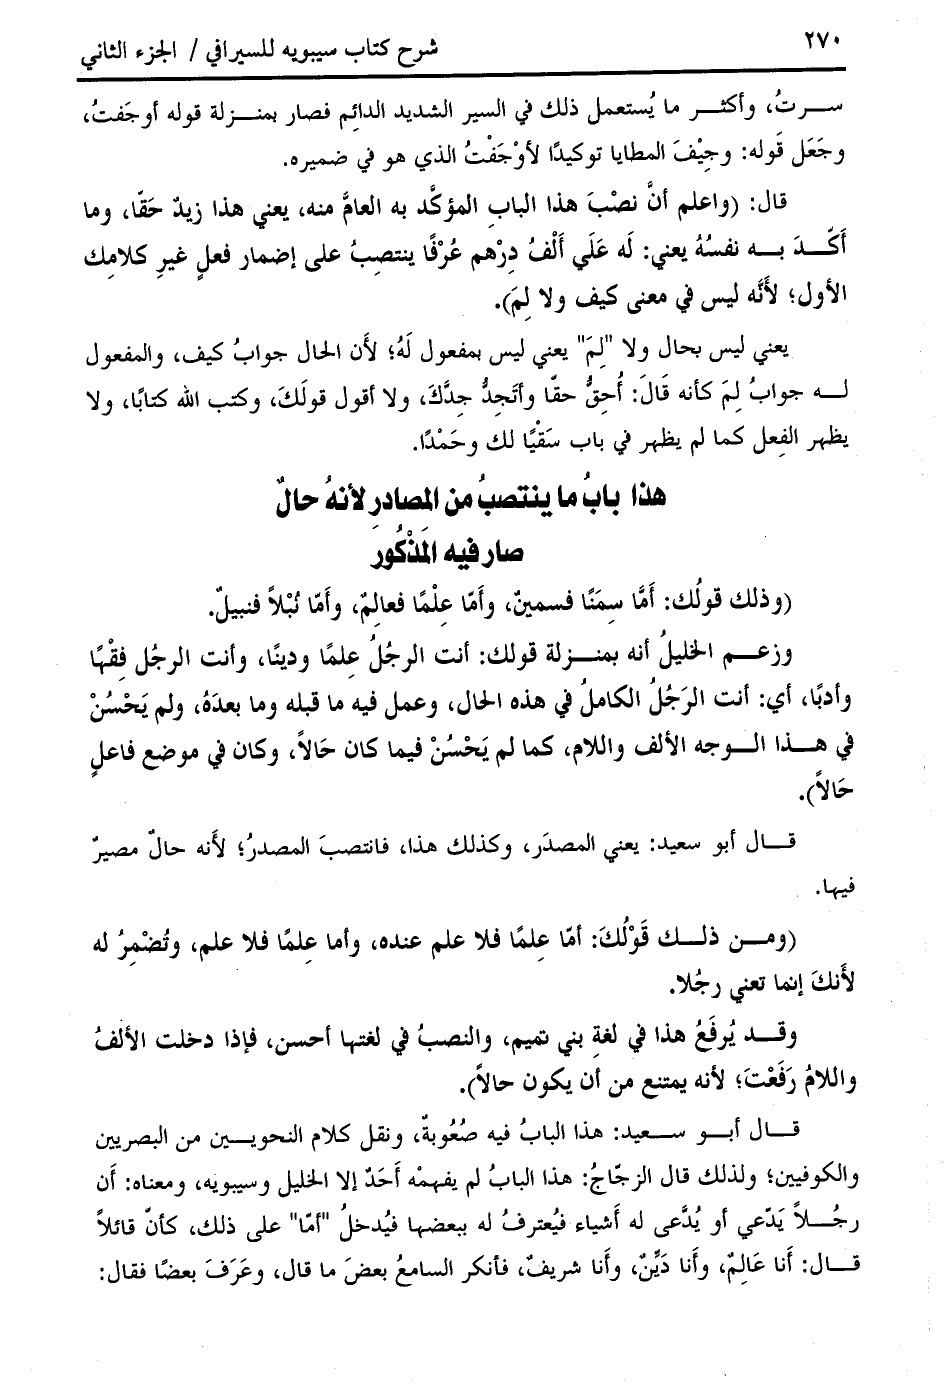 ٢٧٠
شرح كتاب سيبويه للسيرافي / الجزء الثاني
سرتُ، وأكثر ما يُستعمل ذلك في السير الشديد الدائم فصار بمنزلة قوله أوجَفتُ،
وجَعَل قوله: وجِيْفَ المطايا توكيدًا لأوْجَفْتُ الذي هو في ضميره.
قال: (واعلم أنَّ نصْبَ هذا الباب المؤكَّد به العامَّ منه، يعني هذا زيدٌ حَقّا، وما
أَكّدَ به نفسُهُ يعني: لَه عَلَي أَلْفُ دِرْهم عُرْفًا ينتصبُ على إضمار فعلٍ غيرِ كلامِك
الأول؛ لأَنَّه ليس في معنى كيف ولا لِمَ).
يعني ليس بحال ولا "لِمَ" يعني ليس بمفعول لَهُ؛ لأَن الحال جوابُ كيف، والمفعول
له جوابُ لمَ كأنه قَالَ: أُحِقُّ حقّا وأتجدُّ جدَّكَ، ولا أقول قولَكَ، وكتب الله كتابًا، ولا
يظهر الفعل كما لم يظهر في باب سَقْيًا لك وحَمْدًا.
هذا بابُ ما ينتصبُ من المصادر لأنهُ حالٌ
صار فيه المَذْكُورَ
(وذلك قولُك: أمَّا سِمَنًا فسمينٌ، وأَمّا عِلْمًا فعالِمٌ، وأَمّا نُبْلاً فنبيلٌ.
وزعم الخليلُ أنه بمنزلة قولك: أنت الرجُلُ عِلمًا ودينًا، وأنت الرجُل فِقْهًا
وأدبًا، أي: أنت الرَجُلُ الكاملُ في هذه الحال، وعمل فيه ما قبله وما بعدَهُ، ولم يَحْسُنْ
في هذا الوجه الألف واللام، كما لم يَحْسُنْ فيما كان حَالاً، وكان في موضع فاعلٍ
حَالاً).
قال أبو سعيد: يعني المصدَر، وكذلك هذا، فانتصبَ المصدرُ؛ لأنه حالٌ مصيرٌ
فيها.
(ومن ذلك قَوْلُكَ: أمّا عِلمًا فلا علم عنده، وأما عِلمًا فلا علم، وتُضْمِرُ له
لأَنكَ إنما تعني رجُلا.
وقد يُرفَعُ هذا في لغةِ بني تميم، والنصبُ في لغتها أحسن، فإذا دخلت الألفُ
واللامُ رَفَعْتَ؛ لأنه يمتنع من أن يكون حالاً).
قال أبو سعيد: هذا البابُ فيه صُعُوبةٌ، ونقل كلام النحويين من البصريين
والكوفيين؛ ولذلك قال الزجّاجُ: هذا البابُ لم يفهمْه أَحَدٌ إلا الخليل وسيبويه، ومعناه: أَن
رجُلاً يَدّعي أو يُدَّعى له أَشياء فيُعترفُ له ببعضها فيُدخلُ "أمّا" على ذلك، كأنّ قائلاً
قال: أَنا عَالِمٌ، وأَنا دَيِّنٌ، وأَنا شريفٌ، فأنكر السامعُ بعضَ ما قال، وعَرَفَ بعضًا فقال: